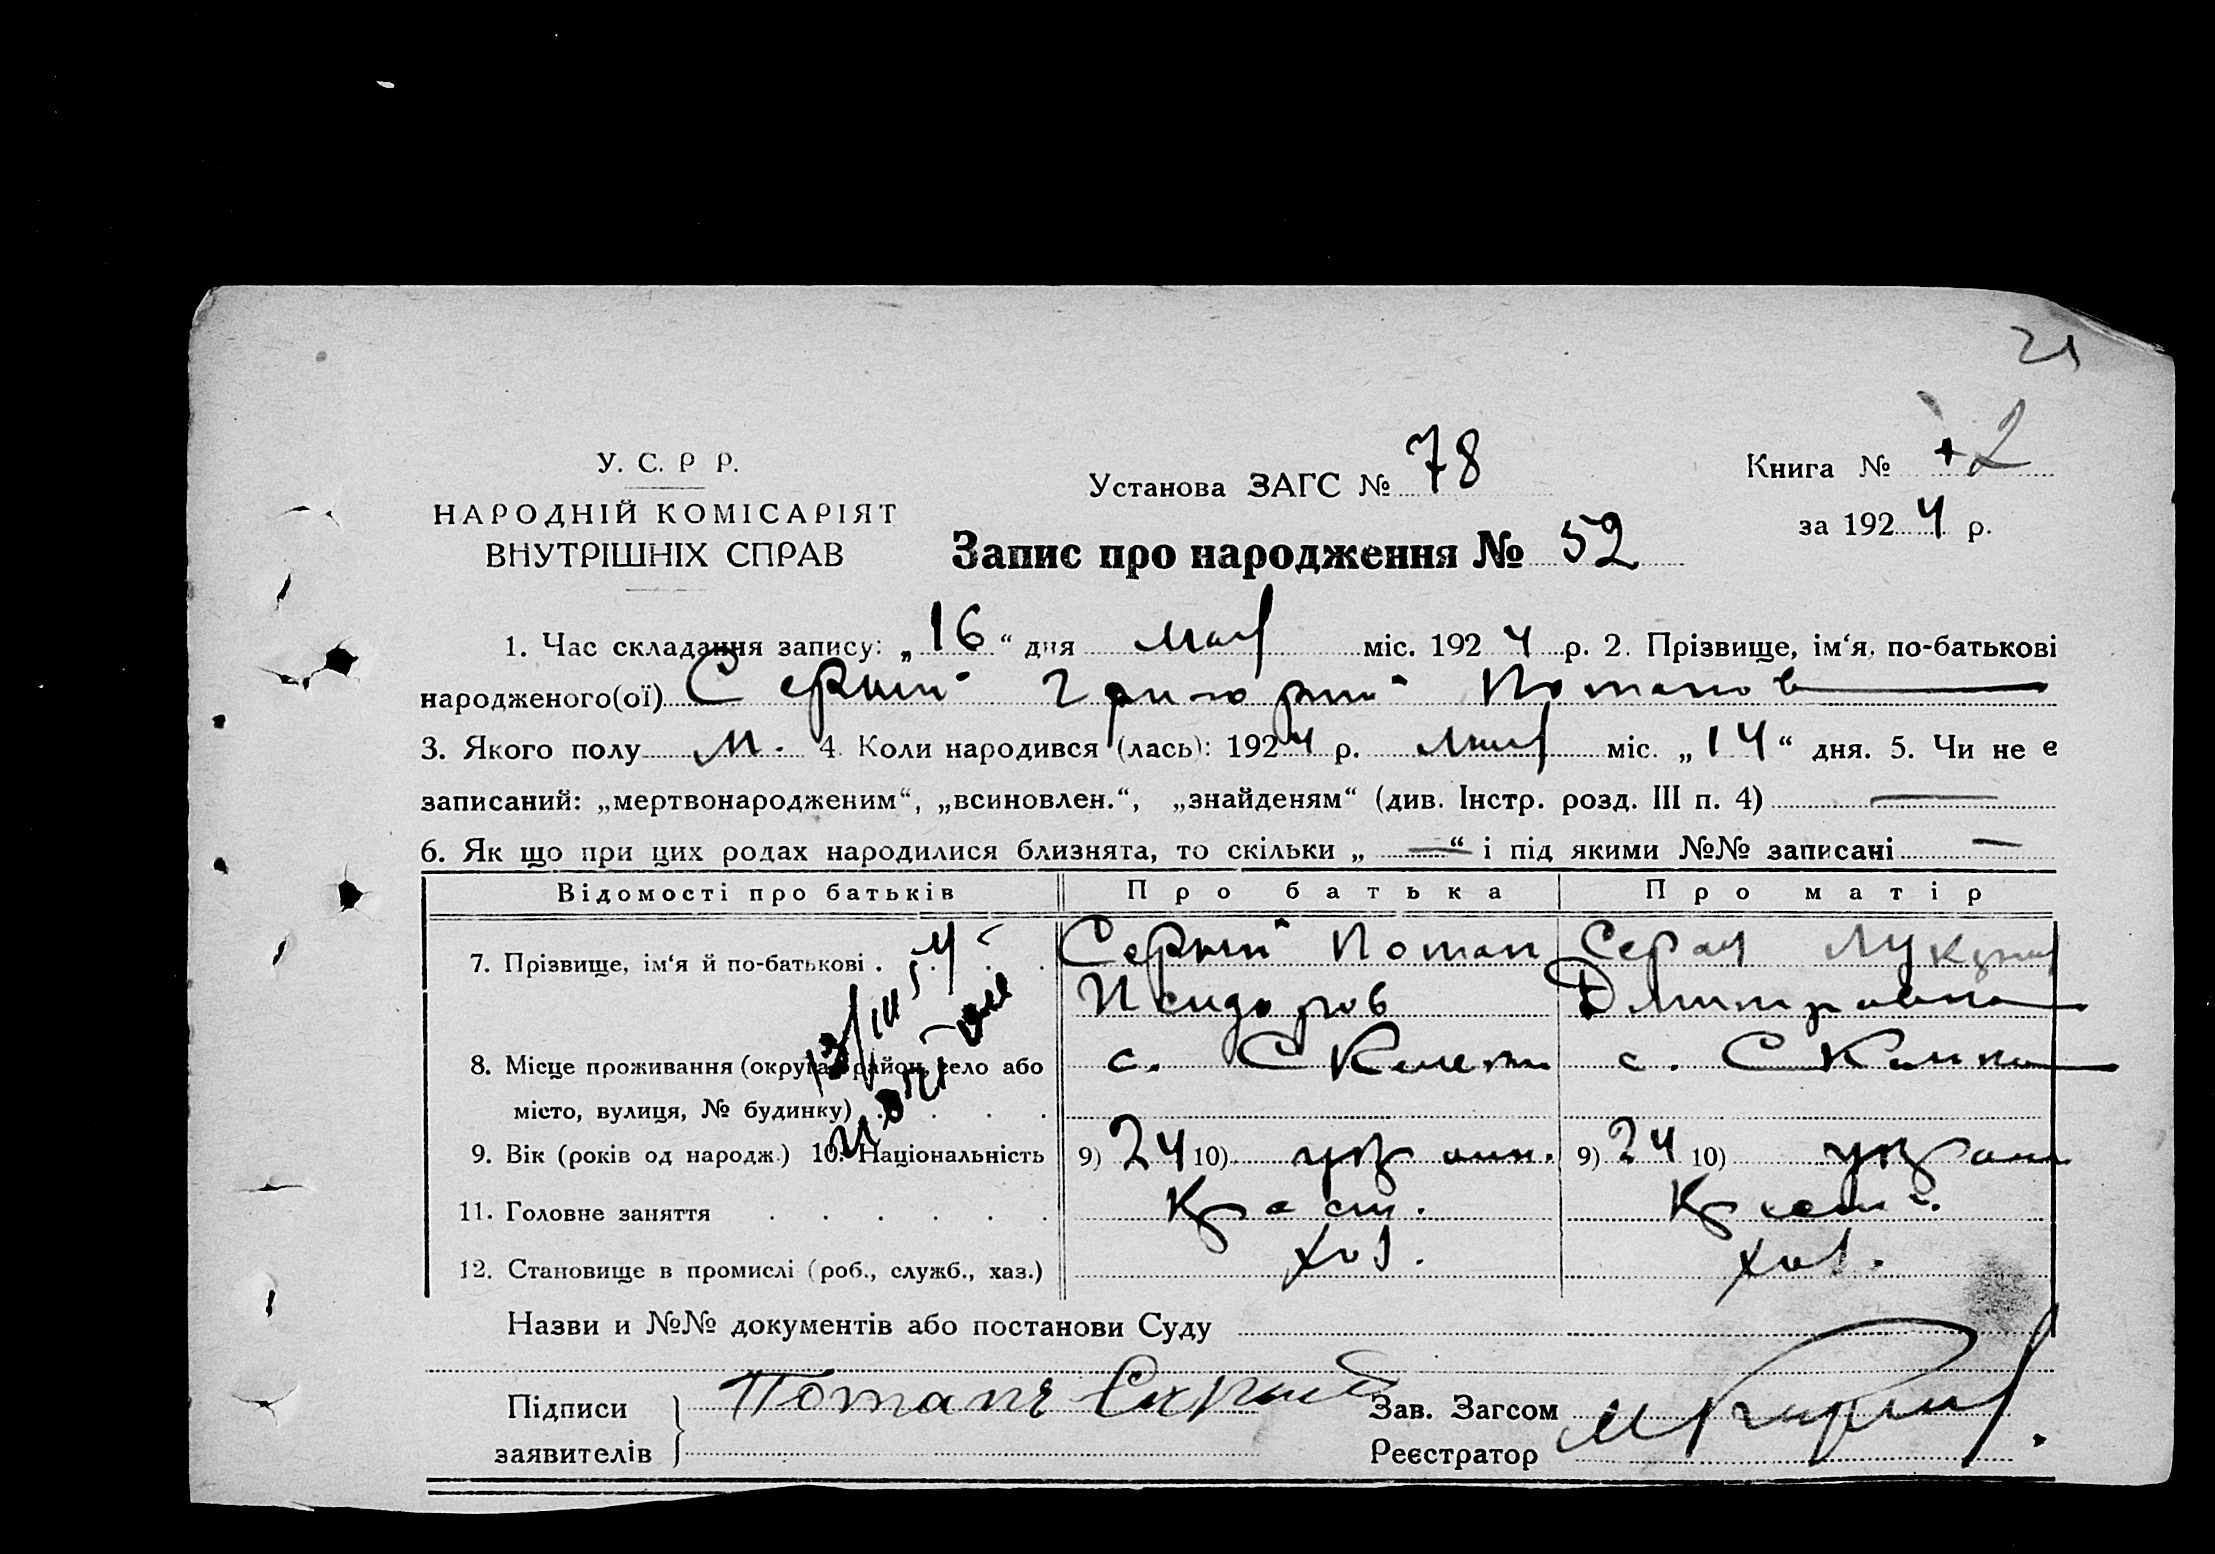 21
У. С. Р Р.
НАРОДНІЙ КОМІСАРІЯТ
ВНУТРІШНІХ СПРАВ
Установа ЗАГС № 78
Книга № 2
за 1924 р.
Запис про народження № 52
1. Час складання запису: „16“ дня мая міс. 1924 р. 2. Прізвище, ім‘я, по-батькові
народженого(ої) Серый Григорий Потапов
3. Якого полу м. 4. Коли народився (лась): 1924 р. мая міс. „14“ дня. 5. Чи не є
записаний: „мертвонародженим“, „всиновлен.“, „знайденям“ (див. Інстр. розд. III п. 4) —
6. Як що при цих родах народилися близнята, то скільки „—“ і під якими №№ записані —
Відомості про батьків Про батька Про матір
7. Прізвище, ім‘я й по-батькові . . . . Серый Потап Серая
Исидоров Дмитровна
8. Місце проживання (округа, район, село або с. с.
місто, вулиця, № будинку) . . . .
9. Вік (років од народж.) 10. Національність 9) 24 10) укр 9) 24 10) укр
11. Головне заняття . . . . . . Крест. Крест.
12. Становище в промислі (роб., служб., хаз.) хоз. хоз.
Назви и №№ документів або постанови Суду
Підписи Потапъ Серый Зав. Загсом
заявителів Реєстратор